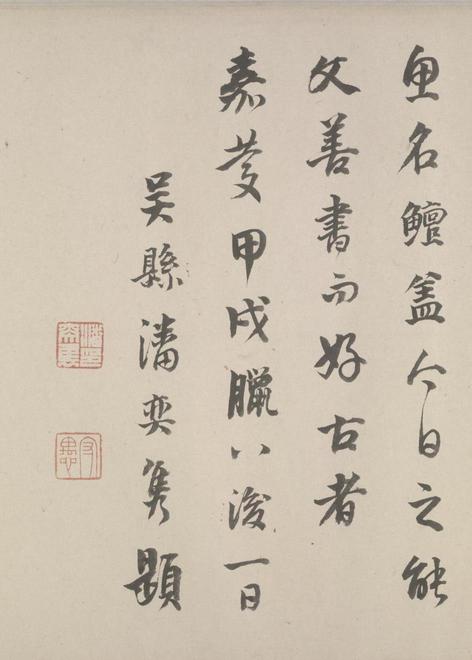 魚名鱣蓋今日之能
文善書而好古者
嘉慶甲戌臘八後一日
吳縣潘奕雋題
守愚